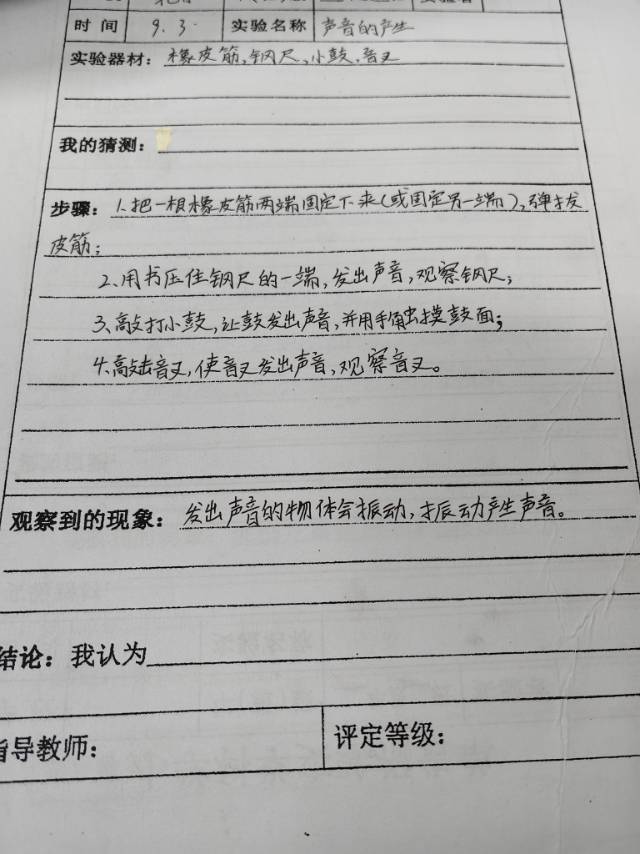 时间 9.3. 实验名称 声音的产生
实验器材：橡皮筋，钢尺，小鼓，音叉
我的猜测：
步骤：1.把一根橡皮筋两端固定下来（或固定另一端），弹拔
皮筋；
2、用书压住钢尺的一端，发出声音，观察钢尺；
3、敲打小鼓，让鼓发出声音，并用手触摸鼓面；
4.敲击音叉，使音叉发出声音，观察音叉。
观察到的现象：发出声音的物体会振动，振动产生声音。
结论：我认为
指导教师： 评定等级：